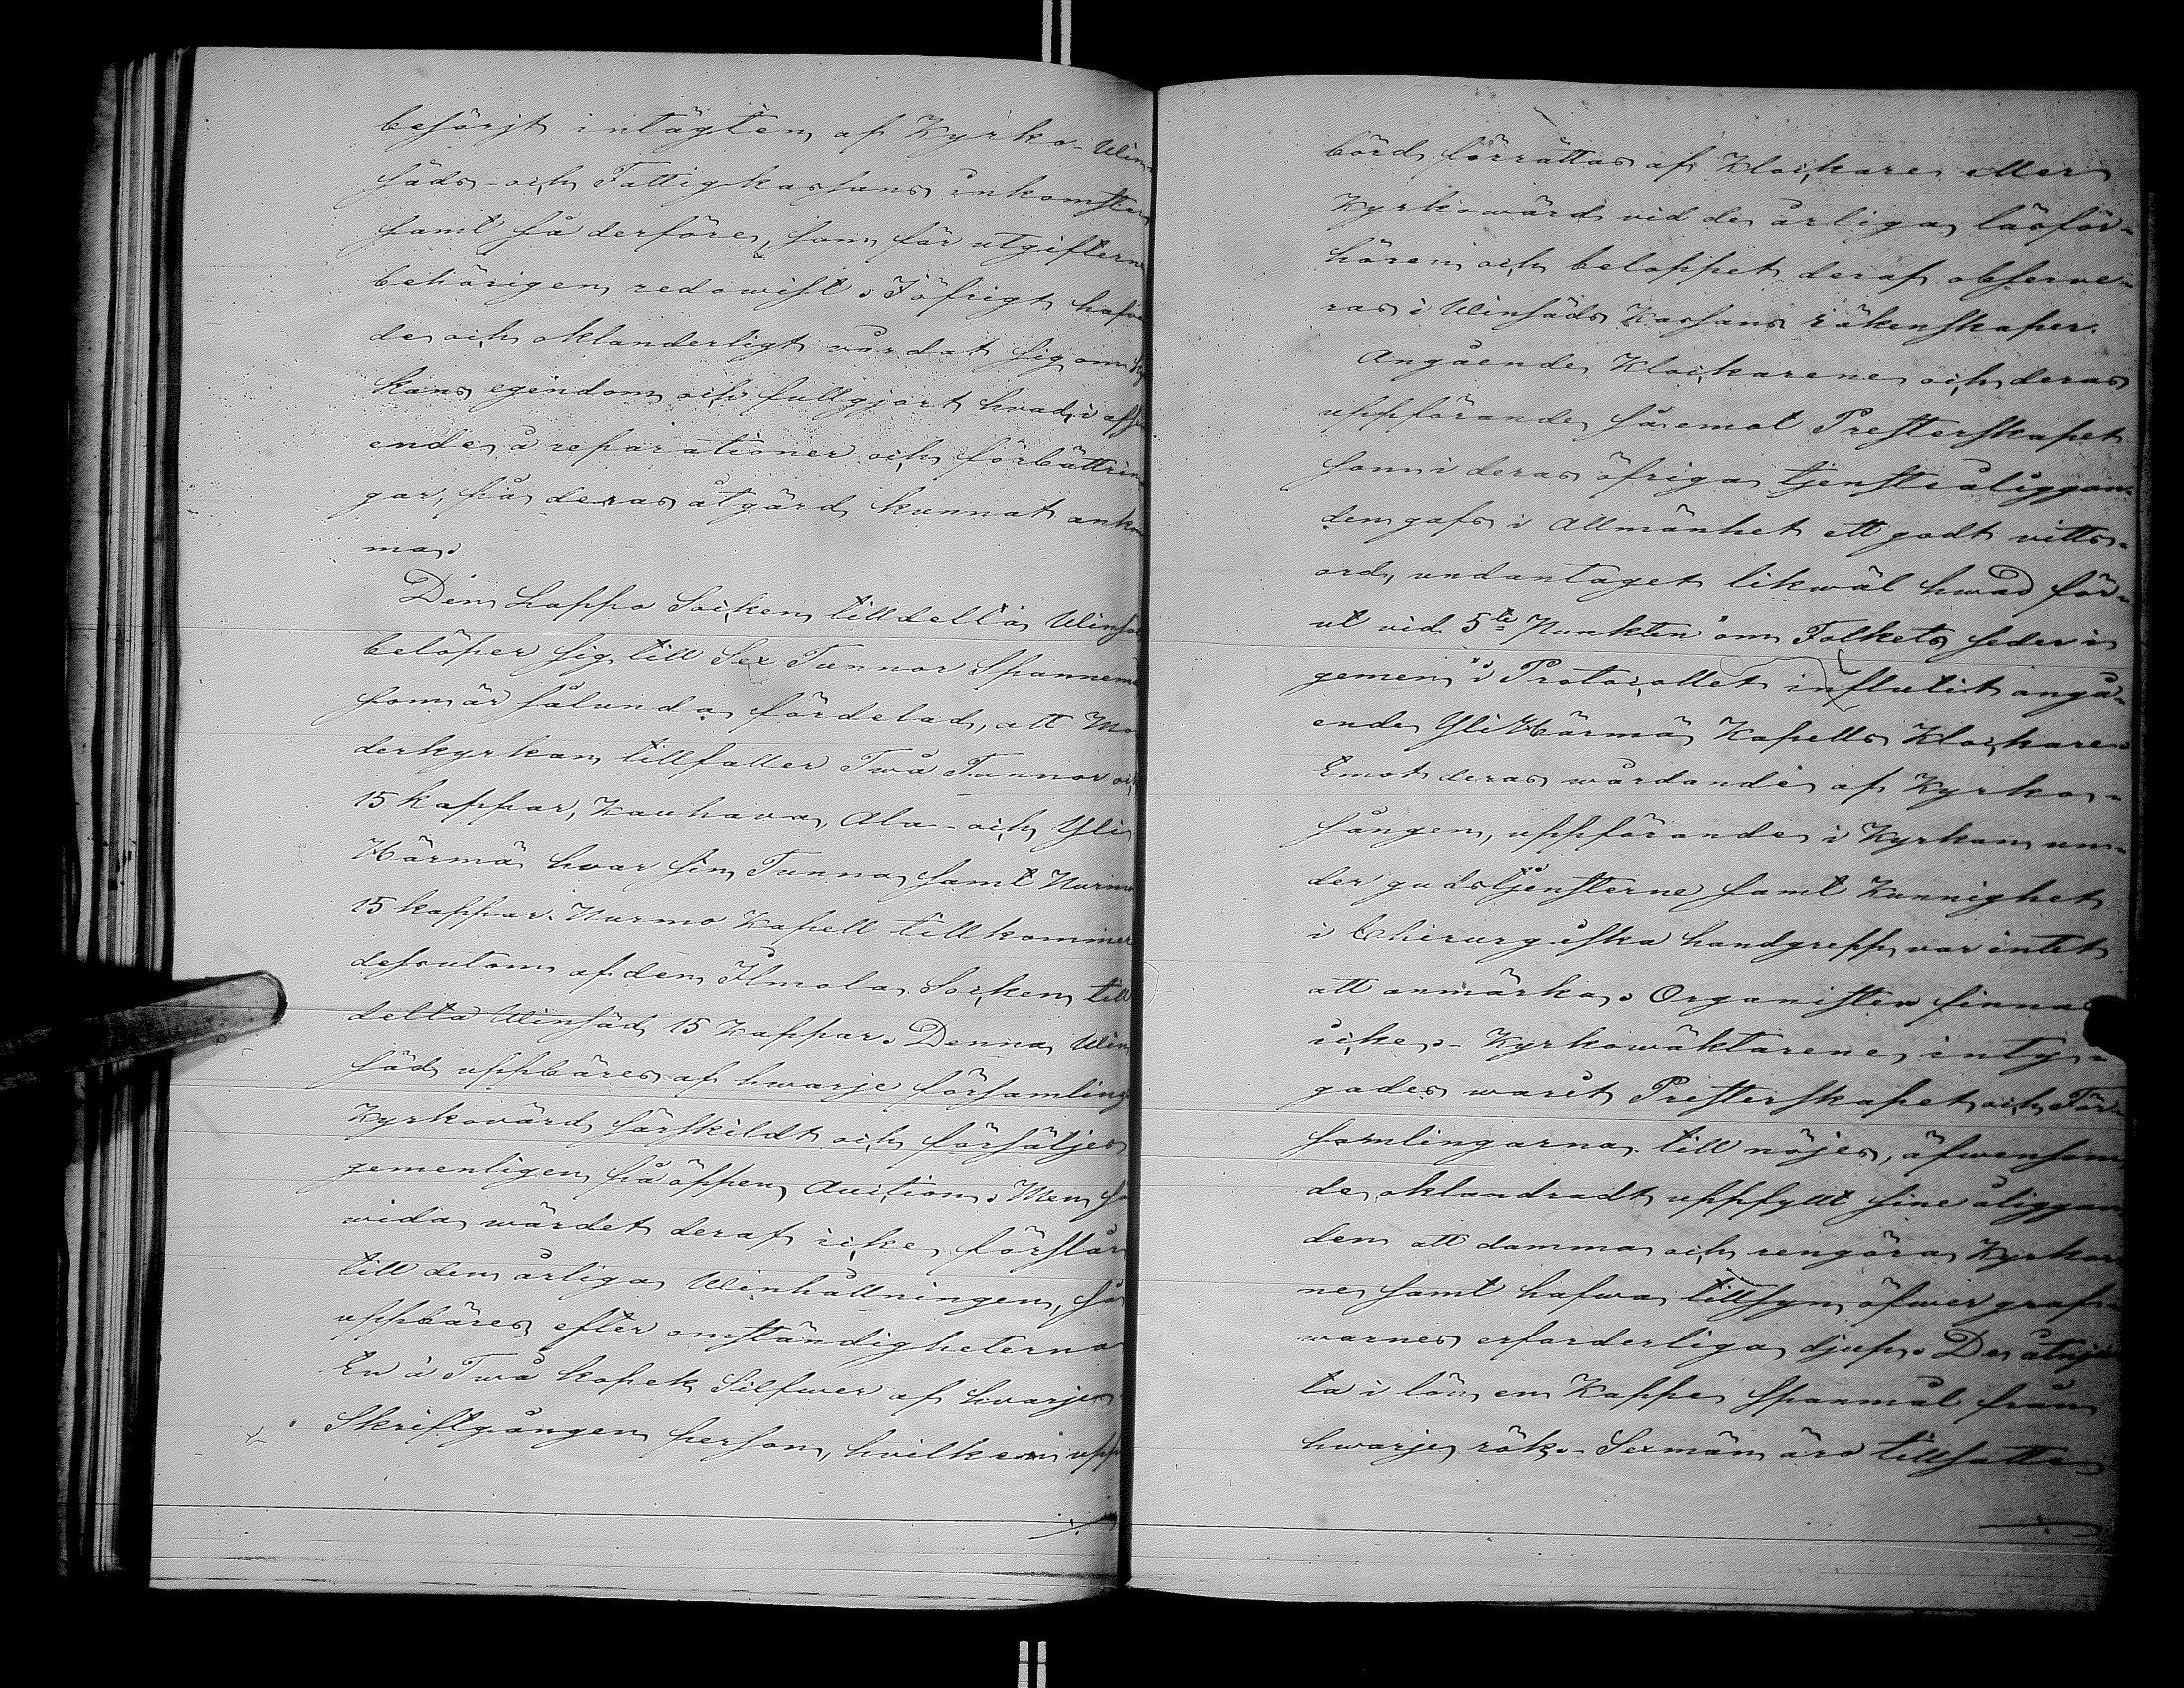 besörjt intägten af Kyrko- Win-
säds- och Fattigkassans inkomster
samt så derföre, som för utgifterne
behörigen redowist. I öfrigt hafva
de och oklanderligt vårdat sig om Kyr
kans egendom och fullgjort hvad, i afse
ende å reparationer och förbättrin
gar, på deras åtgärd kunnat anko
ma.
Den Lappo Socken tilldelta Winsäd
belöper sig till Sex Tunnor Spannemål
som är sålunda fördelad, att Mo
derkyrkan tillfaller Twå Tunnor och
15 kappar, Kauhava, Ala- och Yli
Härmä hvar sin Tunna samt Nurmo
15 kappar. Nurmo Kapell tillkommer
dessutom af den Ilmola Socken till
delta Winsäd 15 Kappar. Denna Win
säd uppbäres af hwarje församlings
Kyrkovärd särskildt och försäljes
gemenligen på öppen Auction. Men så
wida wärdet deraf icke förslår
till den årliga Winhållningen, så
uppbäres efter omständigheterna
En à Twå kopek Silfwer af hvarje
Skriftgången person, hvilken upp
börd förrättas af Klockare eller
Kyrkowärd vid de årliga läsför-
hören och beloppet deraf observe-
ras i Winsäds Kassans räkenskaper.
Angående Klockarene och deras
uppförande såremot Presterskapet
som i deras öfriga tjensteåliggan-
den gafs i Allmänhet ett godt vitts-
ord, undantaget likwäl hwad för-
ut vid 5te Punkten "om Folkets seder i
gemen" i Protocollet influtit angå-
ende Yli Härmä Kapells Klockare.
Emot deras wårdande af Kyrko-
sången, uppförande i Kyrkan un-
der gudstjensterne samt Kunnighet
i Chirurgiska handgrepp var intet
att anmärka. Organister finnas
icke. - Kyrkowäktarene inty-
gades warit Presterskapet och För-
samlingarna till nöjes, äfwensom
de oklandradt uppfyllt sine åliggan
den att damma och rengöra Kyrkor
ne samt hafwa tillsyn öfwer graf-
warnes erforderliga djup. De åtnju
ta i lön en Kappe Spanmål från
hwarje rök. - Sexmän äro tillsatte